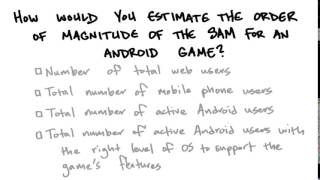 HOW WOULD YOU ESTIMATE THE ORDER
OF MAGNITUDE OF THE SAM FOR AN
ANDROID GAME?
Number of total web users
Total number of mobile phone users
Total number of active Android users
Total number of active Android users with
the right level of OS to support the
game's features